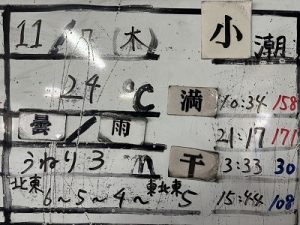 11/7 (木) 小潮
24℃ 満 10:34 158
曇/雨 21:17 171
うねり3m 干 3:33 30
北東6~5~4~東北東5 15:44 108